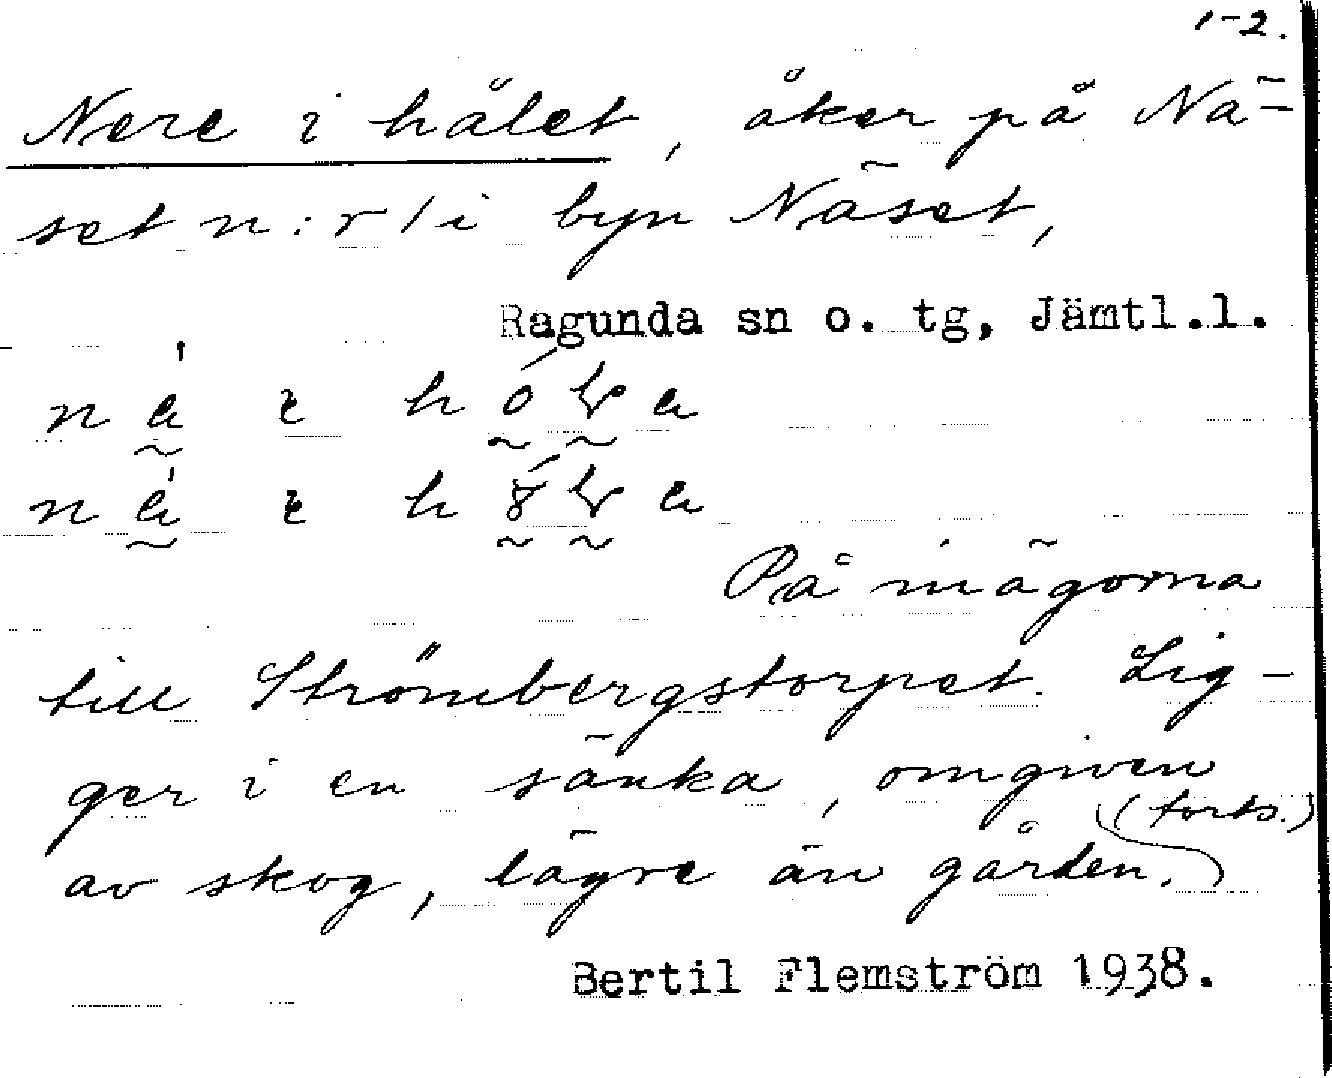 1-2.
Nere i hålet, åker på Nä-
set n:r 1 i byn Näset,
Ragunda sn o. tg, Jämtl.l.
På inägorna
till Strömbergstorpet. Lig-
ger i en sänka, omgiven
(forts.)
av skog, lägre än gården.
Bertil Flemström 1938.